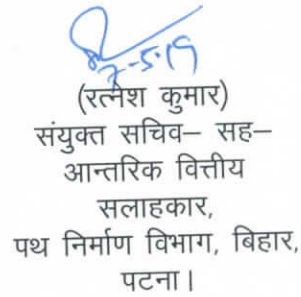 7-5-19
(रत्नेश कुमार)
संयुक्त सचिव– सह–
आन्तरिक वित्तीय
सलाहकार,
पथ निर्माण विभाग, बिहार,
पटना।